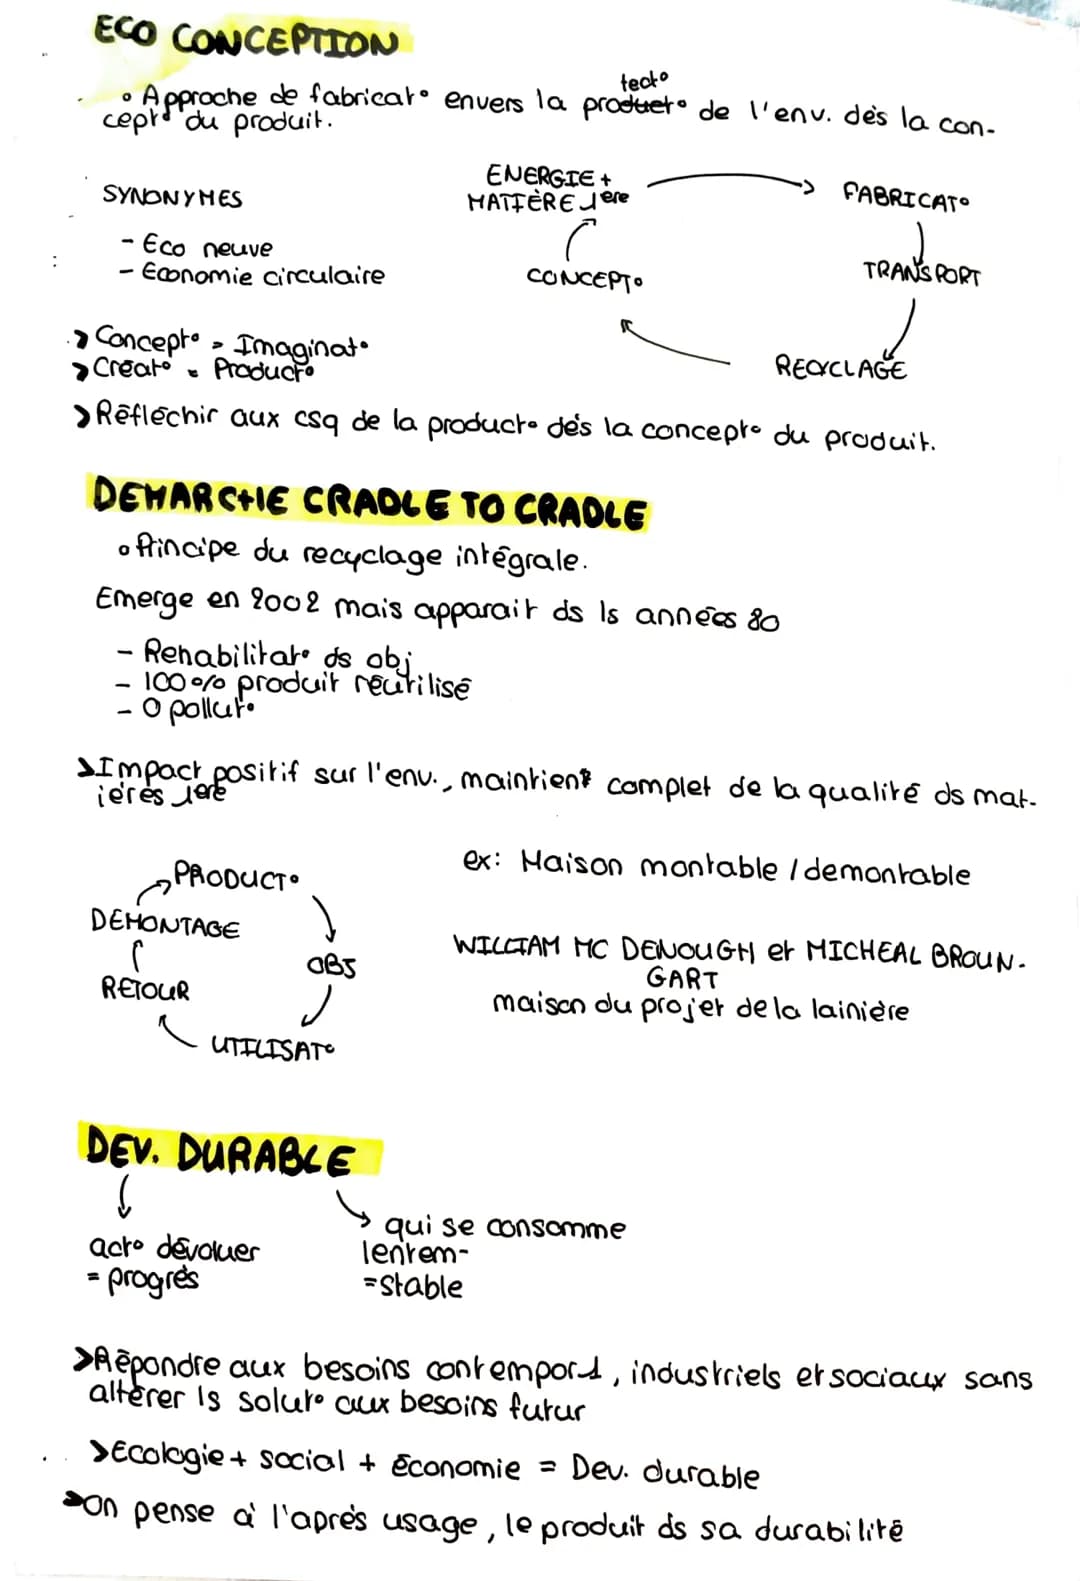 ECO CONCEPTION
tect°
• Approche de fabricat° envers la product° de l'env. dès la con-
cept° du produit.
SYNONYMES
- Eco neuve
- Economie circulaire
ENERGIE +
MATIÈRE 1ere
FABRICAT°
TRANSPORT
RECYCLAGE
CONCEPT°
> Concept° = Imaginat°
> Creat° = Product°
> Réfléchir aux csq de la product° dés la concept° du produit.
DEMARCHE CRADLE TO CRADLE
• Principe du recyclage intégrale.
Emerge en 2002 mais apparait ds ls années 80
- Rehabilitat° ds obj
- 100% produit réutilisé
- 0 pollut°
> Impact positif sur l'env., maintient complet de la qualité ds mat-
ières 1ere
PRODUCT°
OBJ
UTILISAT°
RETOUR
DEMONTAGE
ex: Maison montable / demontable
WILLIAM MC DENOUGH et MICHEAL BROUN-
GART
maison du projet de la lainière
DEV. DURABLE
act° dévoluer
= progrés
qui se consomme
lentem-
= stable
> Répondre aux besoins , industriels et sociaux sans
altérer ls solut° aux besoins futur
> Ecologie + social + économie = Dev. durable
> on pense à l'aprés usage, le produit ds sa durabilité